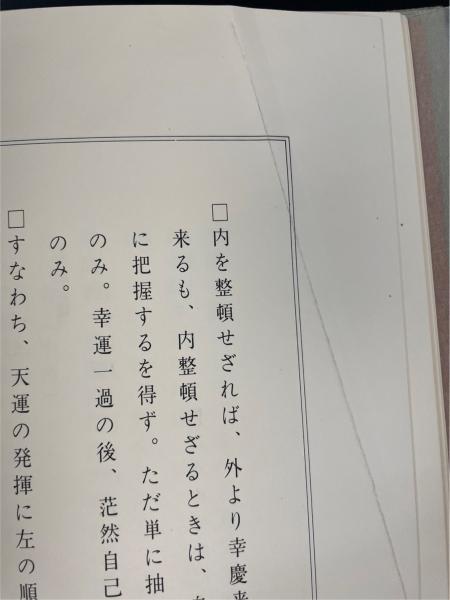 □内を整頓せざれば、外より幸慶来
来るも、内整頓せざるときは、
に把握するを得ず。ただ単に抽
のみ。幸運一過の後、茫然自己
のみ。
□すなわち、天運の発揮に左の順